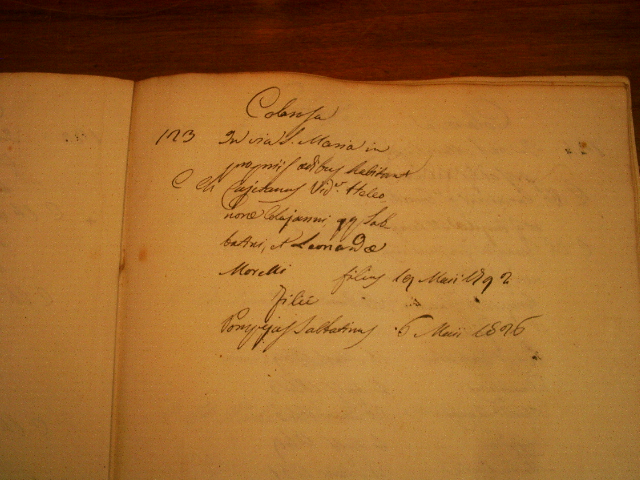 Colansa
123 In via S. Maria in
propriis ædibus habitant
C M Cajetanus Vid.r Heleo
noræ Colajanni, qq Sab
batini, et Leonardæ
Morelli filius 19 Maii 1792
Filii
Pompejus Sabbatinus 6 Maii 1826